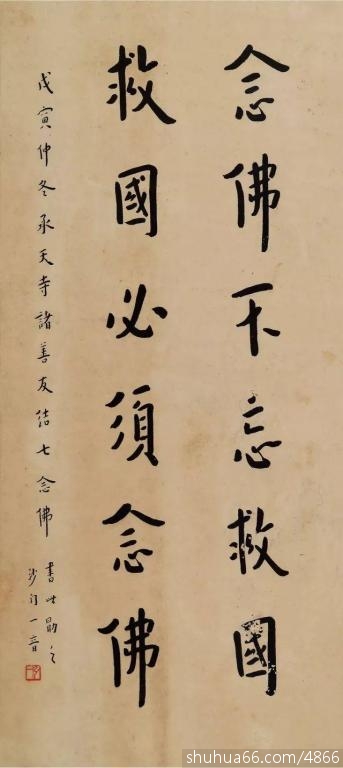 念佛不忘救國
救國必須念佛
戊寅仲冬承天寺諸善友結七念佛
書此勗之
沙門一音
shuhua66.com/4866